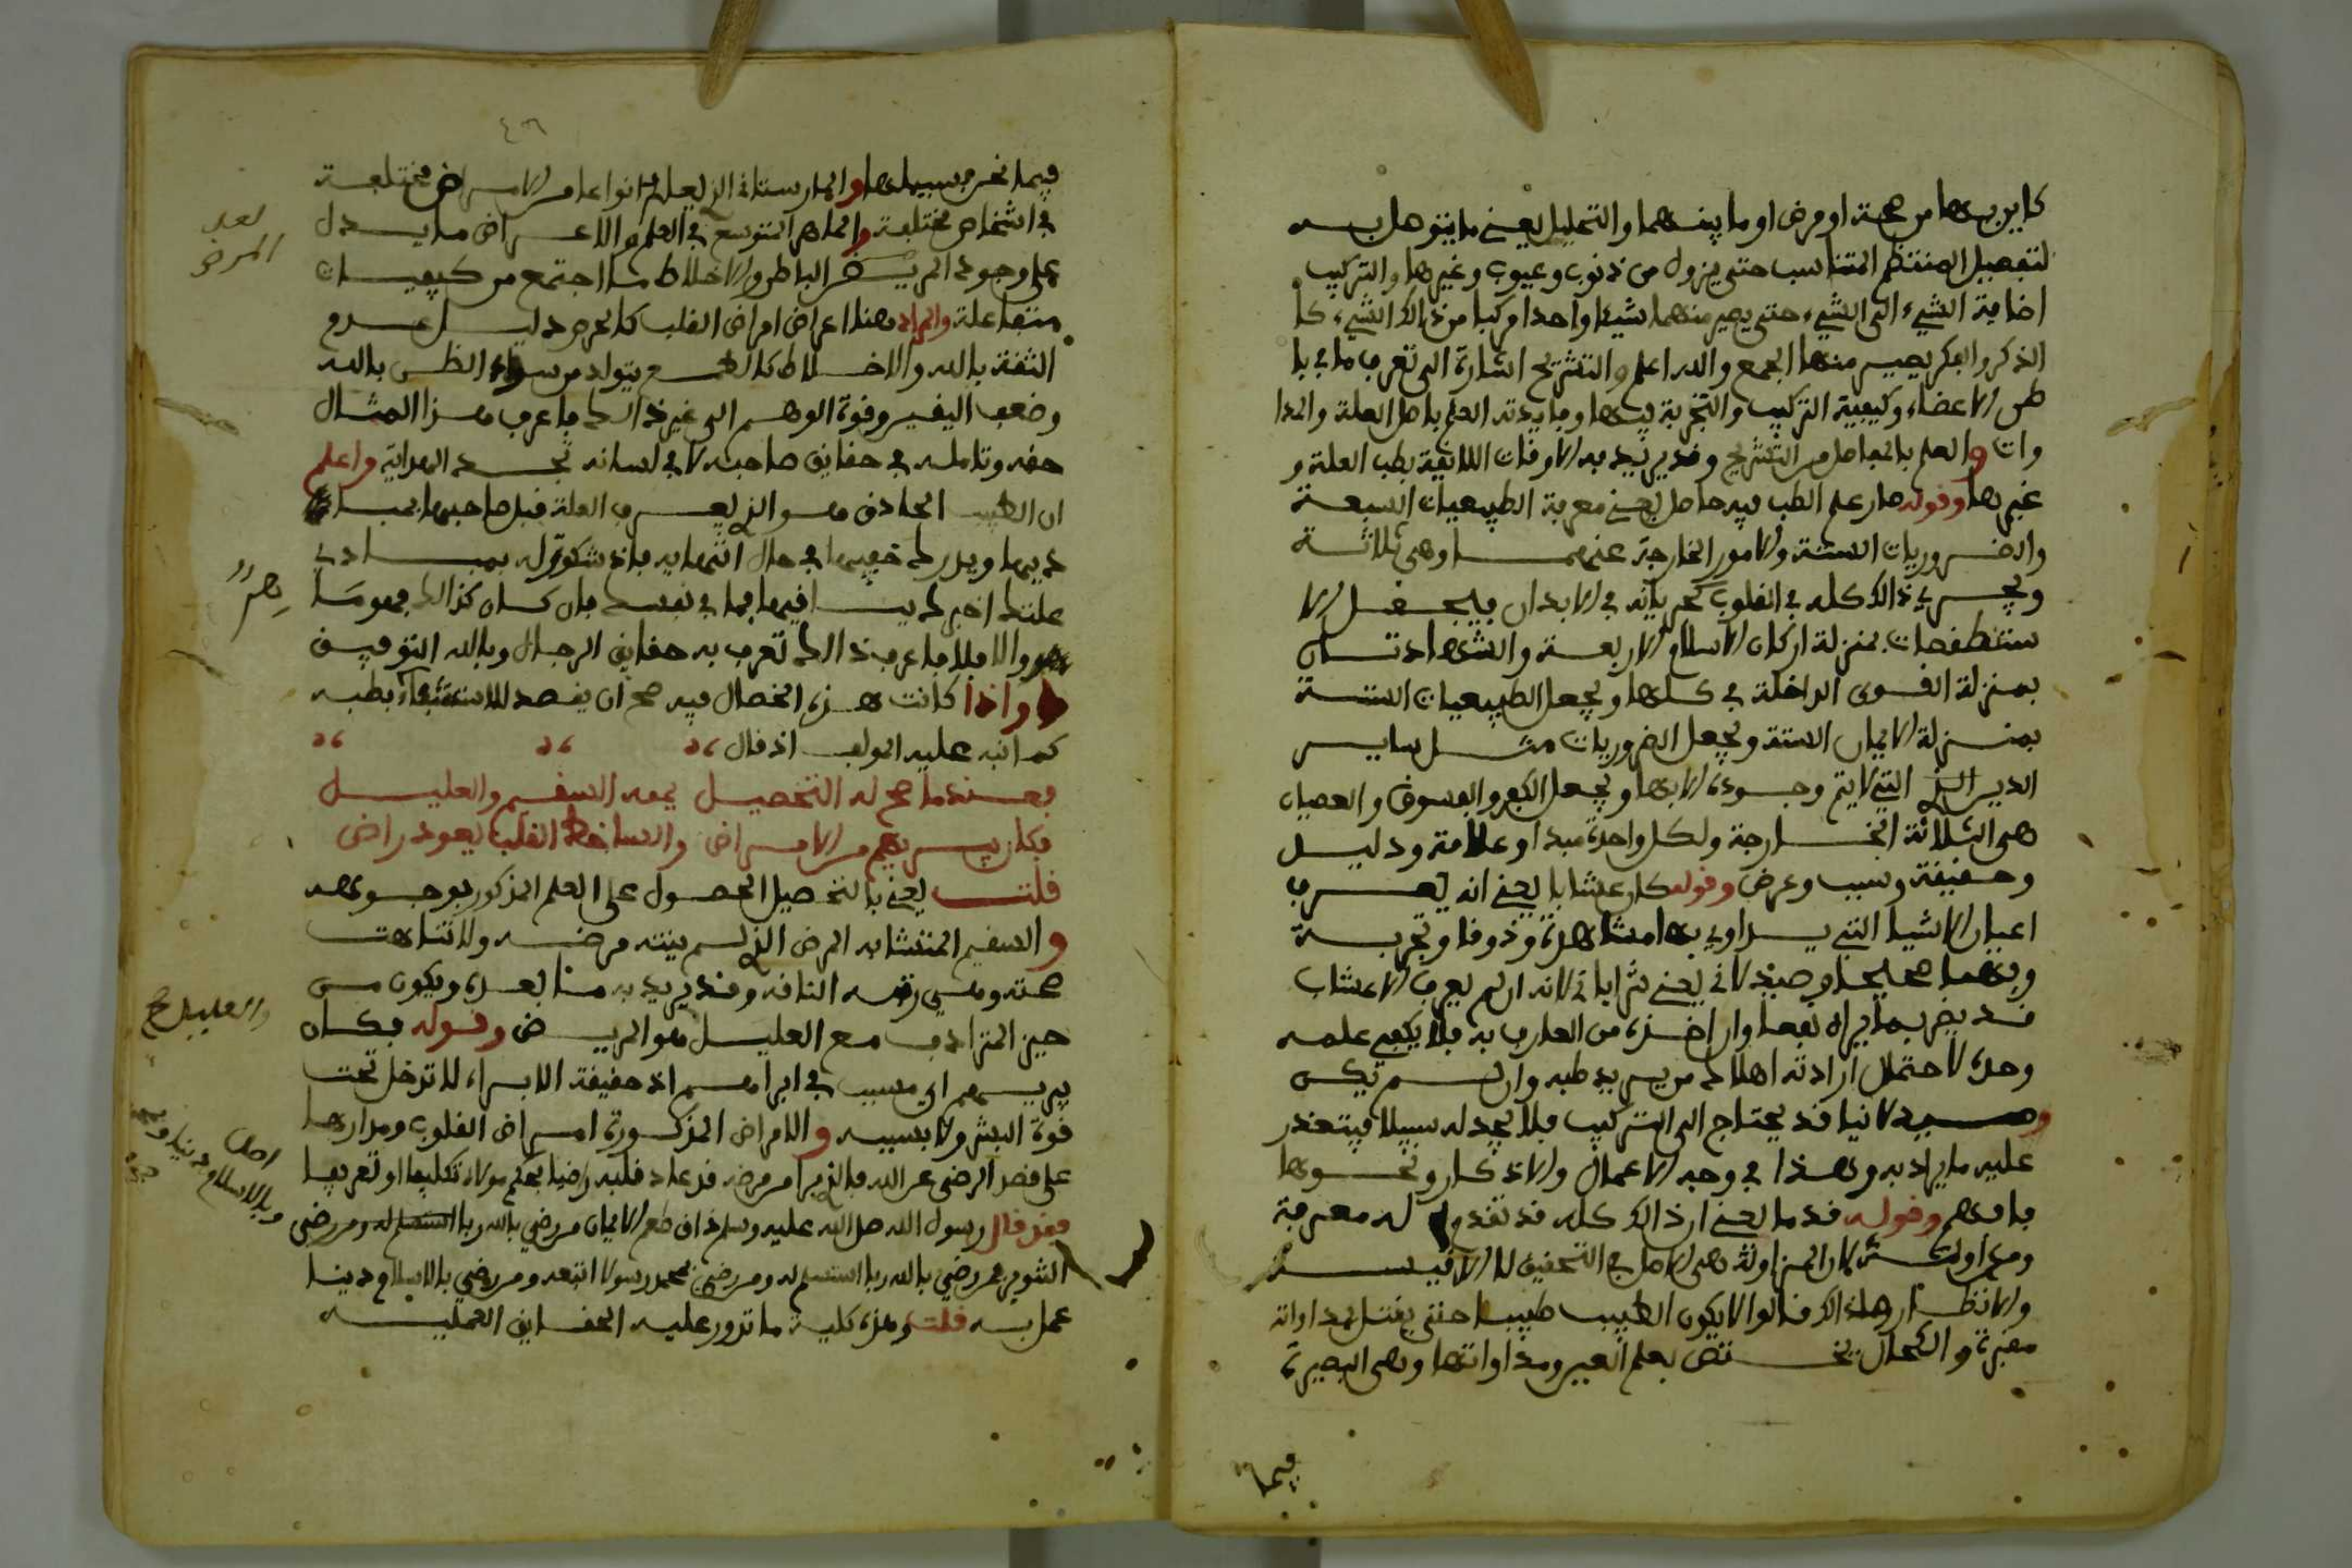 كما يزيدها من صحة او مرض او ما بينهما والتحليل يعني ما يتوصل به
لتفصيل المنتظم المتناسب حتى يزول من ذنوب وعيوب وغيرها والتركيب
اضافة الشيء الى الشيء حتى يصير منهما شيئا واحدا مركبا من ذالك الشيء كما
الذكر والفكر يصير منهما الجمع والله اعلم والتشريح اشارة الى تعرف ما في با
طن الاعضاء وكيفية التركيب والتجربة فيها وفايدته العلم باصل العلة والمدا
وات والعلم بالحاصل من التشريح وقد يريد به الاوقات اللايقة بطب العلة و
غيرها وقوله صار علم الطب فيه حاصل يعني معرفة الطبيعيات السبعة
والضروريات الستة والامور الخارجة عنهما وهي ثلاثة
ويجري ذالك كله في القلوب كجريانه في الابدان فيجعل الا
ستقطفصات بمنزلة اركان الاسلام الاربعة والشهادتان
بمنزلة القوى الداخلة في كلها ويجعل الطبيعيات الستة
بمنزلة الايمان الستة ويجعل الضروريات مثل ساير
الدين التي لا يتم وجوده الا بها ويجعل الكفر والفسوق والعصيان
هي الثلاثة الخارجة ولكل واحدة مبدا وعلامة ودليل
وحقيقة وسبب وعرض وقوله كان عشابا يعني انه يعرف
اعيان الاشيا التي يداوي بها مشاهدة وذوقا وتجربة
وفهما صحيحا وصيدلاني يعني شراباتي لانه ان لم يعرف الاعشاب
قد يضر بما يراه نفعا وان اخذه من العارف به فلا يكفي علمه
وحده لاحتمال ارادته اهلاك من يريد طبه وان لم يكن
وصيدلانيا قد يحتاج الى التركيب فلا يجد له سبيلا فيتعذر
عليه ما يراد به وهذا في وجه الاعمال والاذكار ونحوها
فافهم وقوله قدما يعني ان ذالك كله قد تقدم له معرفة
ومزاولة لان المزاولة هي الاصل في التحقيق لا الاقيسة
والانظار ولذالك قالوا لا يكون الطبيب طبيبا حتى يقتل بمداواته
مقبرة والكحال يختص بعلم العين ومداواتها وهي البصيرة
فيما
٤٦
فيما نحن بسبيلها والمارستان الذي يعلم انواعا من الامراض مختلفة
في اشخاص مختلفة والماهر المتوسع في العلم والاعراض ما يدل
على وجود المرض الباطن والاخلاط ما اجتمع من كيفيات
متفاعلة والمراد هنا اعراض امراض القلب كالحرص دليل عدم
الثقة بالله والاخلاط كالطمع يتولد من سوء الظن بالله
وضعف اليقين وقوة الوهم الى غير ذالك فاعرف هذا المثال
حقه وتامله في حقايق صاحبه لا في لسانه تجده الهداية واعلم
ان الطبيب الحاذق هو الذي يعرف العلة قبل صاحبها بمبا
ديها ويدرك خفيها في حال انتهايه فاذ شكوت له بمبادي
علتك اخبرك بباقيها بما في نفسك فان كان كذالك فهو
هو والا فلا فاعرف ذالك تعرف به حقايق الرجال وبالله التوفيق
واذا كانت هذه الخصال فيه صح ان يقصد للاستشفاء بطبه
كما نبه عليه المولف اذ قال
فعندما صح له التحصيل يمم السقيم والعليل
فكان يبريهم من الامراض والساخط القلب يعود راض
قلت يعني بالتحصيل الحصول على العلم المذكور بوجوهه
والسقيم المتشابه المرض الذي لم ينته مرضه ولا تناهت
صحته وهي رقمه الناقه وقد يريد به هنا بعده ويكون من
حيز المترادف مع العليل هو المريض وقوله فكان
يبريهم اي بسبب في ابرايهم اذ حقيقة الابراء لا تدخل تحت
قوة البشر ولا بسببه والامراض المذكورة امراض القلوب ومدارها
على فقد الرضى عن الله فالذي برا من مرضه قد عاد قلبه راضيا بحكم مولاه تكليفا او تعريفا
فقد قال رسول الله صلى الله عليه وسلم ذاق طعم الايمان من رضي بالله ربا استسلم له ومن رضى
الشوم عمن رضي بالله ربا استسلم له ومن رضي بمحمد رسولا اتبعه ومن رضي بالاسلام دينا
عمل به قلت وهذه كلية ما تدور عليه الحقايق العملية
لعله
المرض
والعليل صح
اصل
وبالاسلام دينا